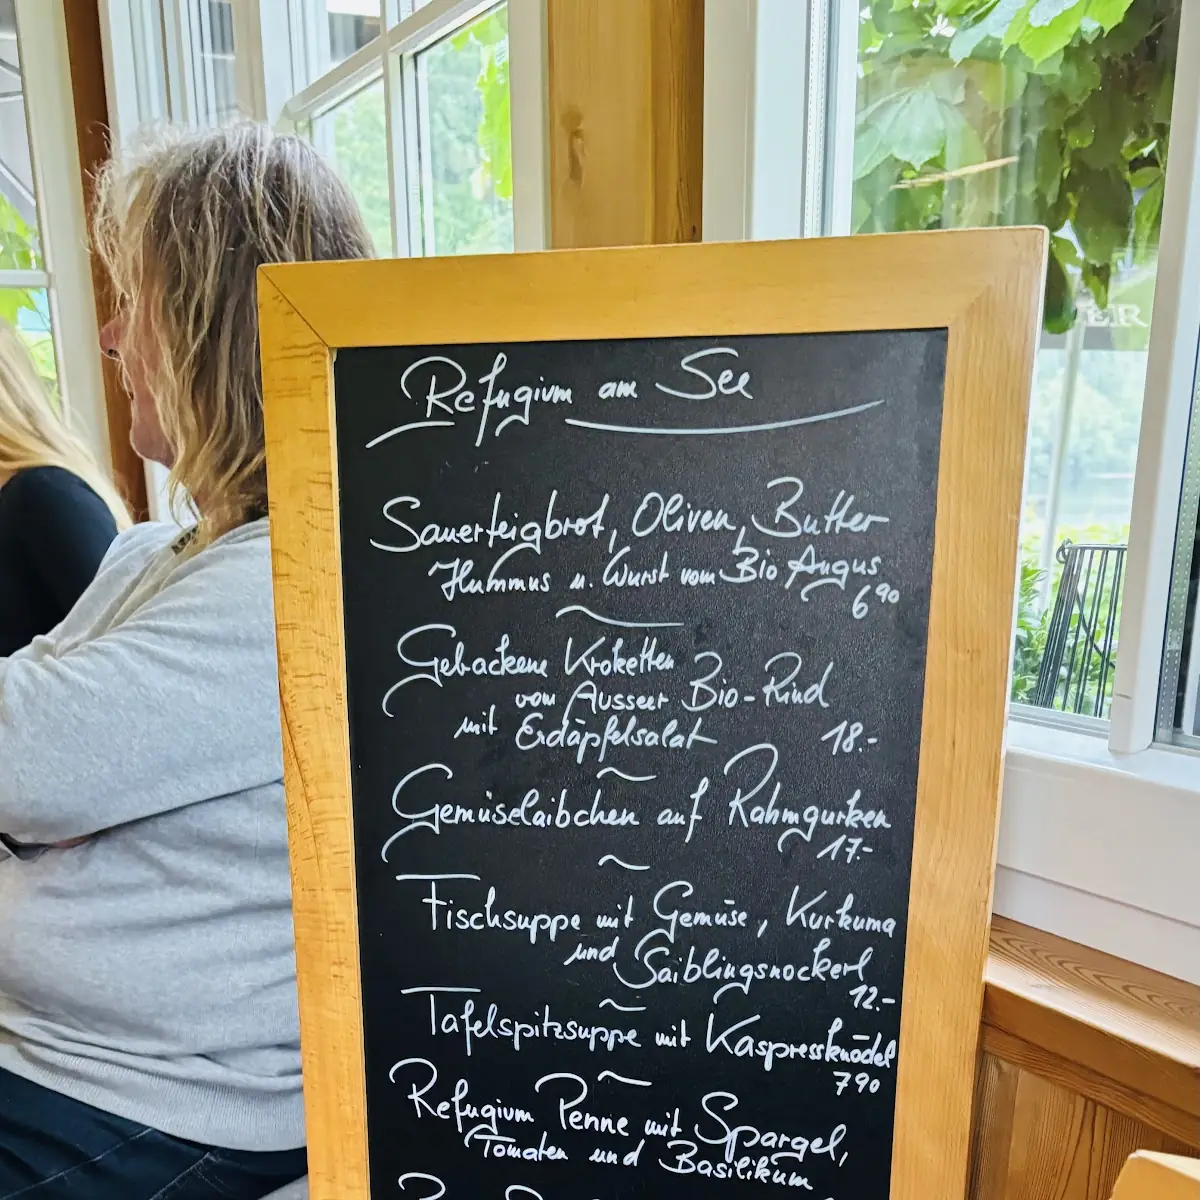 Refugium am See
Sauerteigbrot, Oliven, Butter
Hummus u. Wurst vom Bio Angus
6 90
Gebackene Kroketten
vom Ausseer Bio-Rind
mit Erdäpfelsalat 18.-
Gemüselaibchen auf Rahmgurken
17.-
Fischsuppe mit Gemüse, Kurkuma
und Saiblingsnockerl
12.-
Tafelspitzsuppe mit Kaspressknödel
7 90
Refugium Penne mit Spargel,
Tomaten und Basilikum